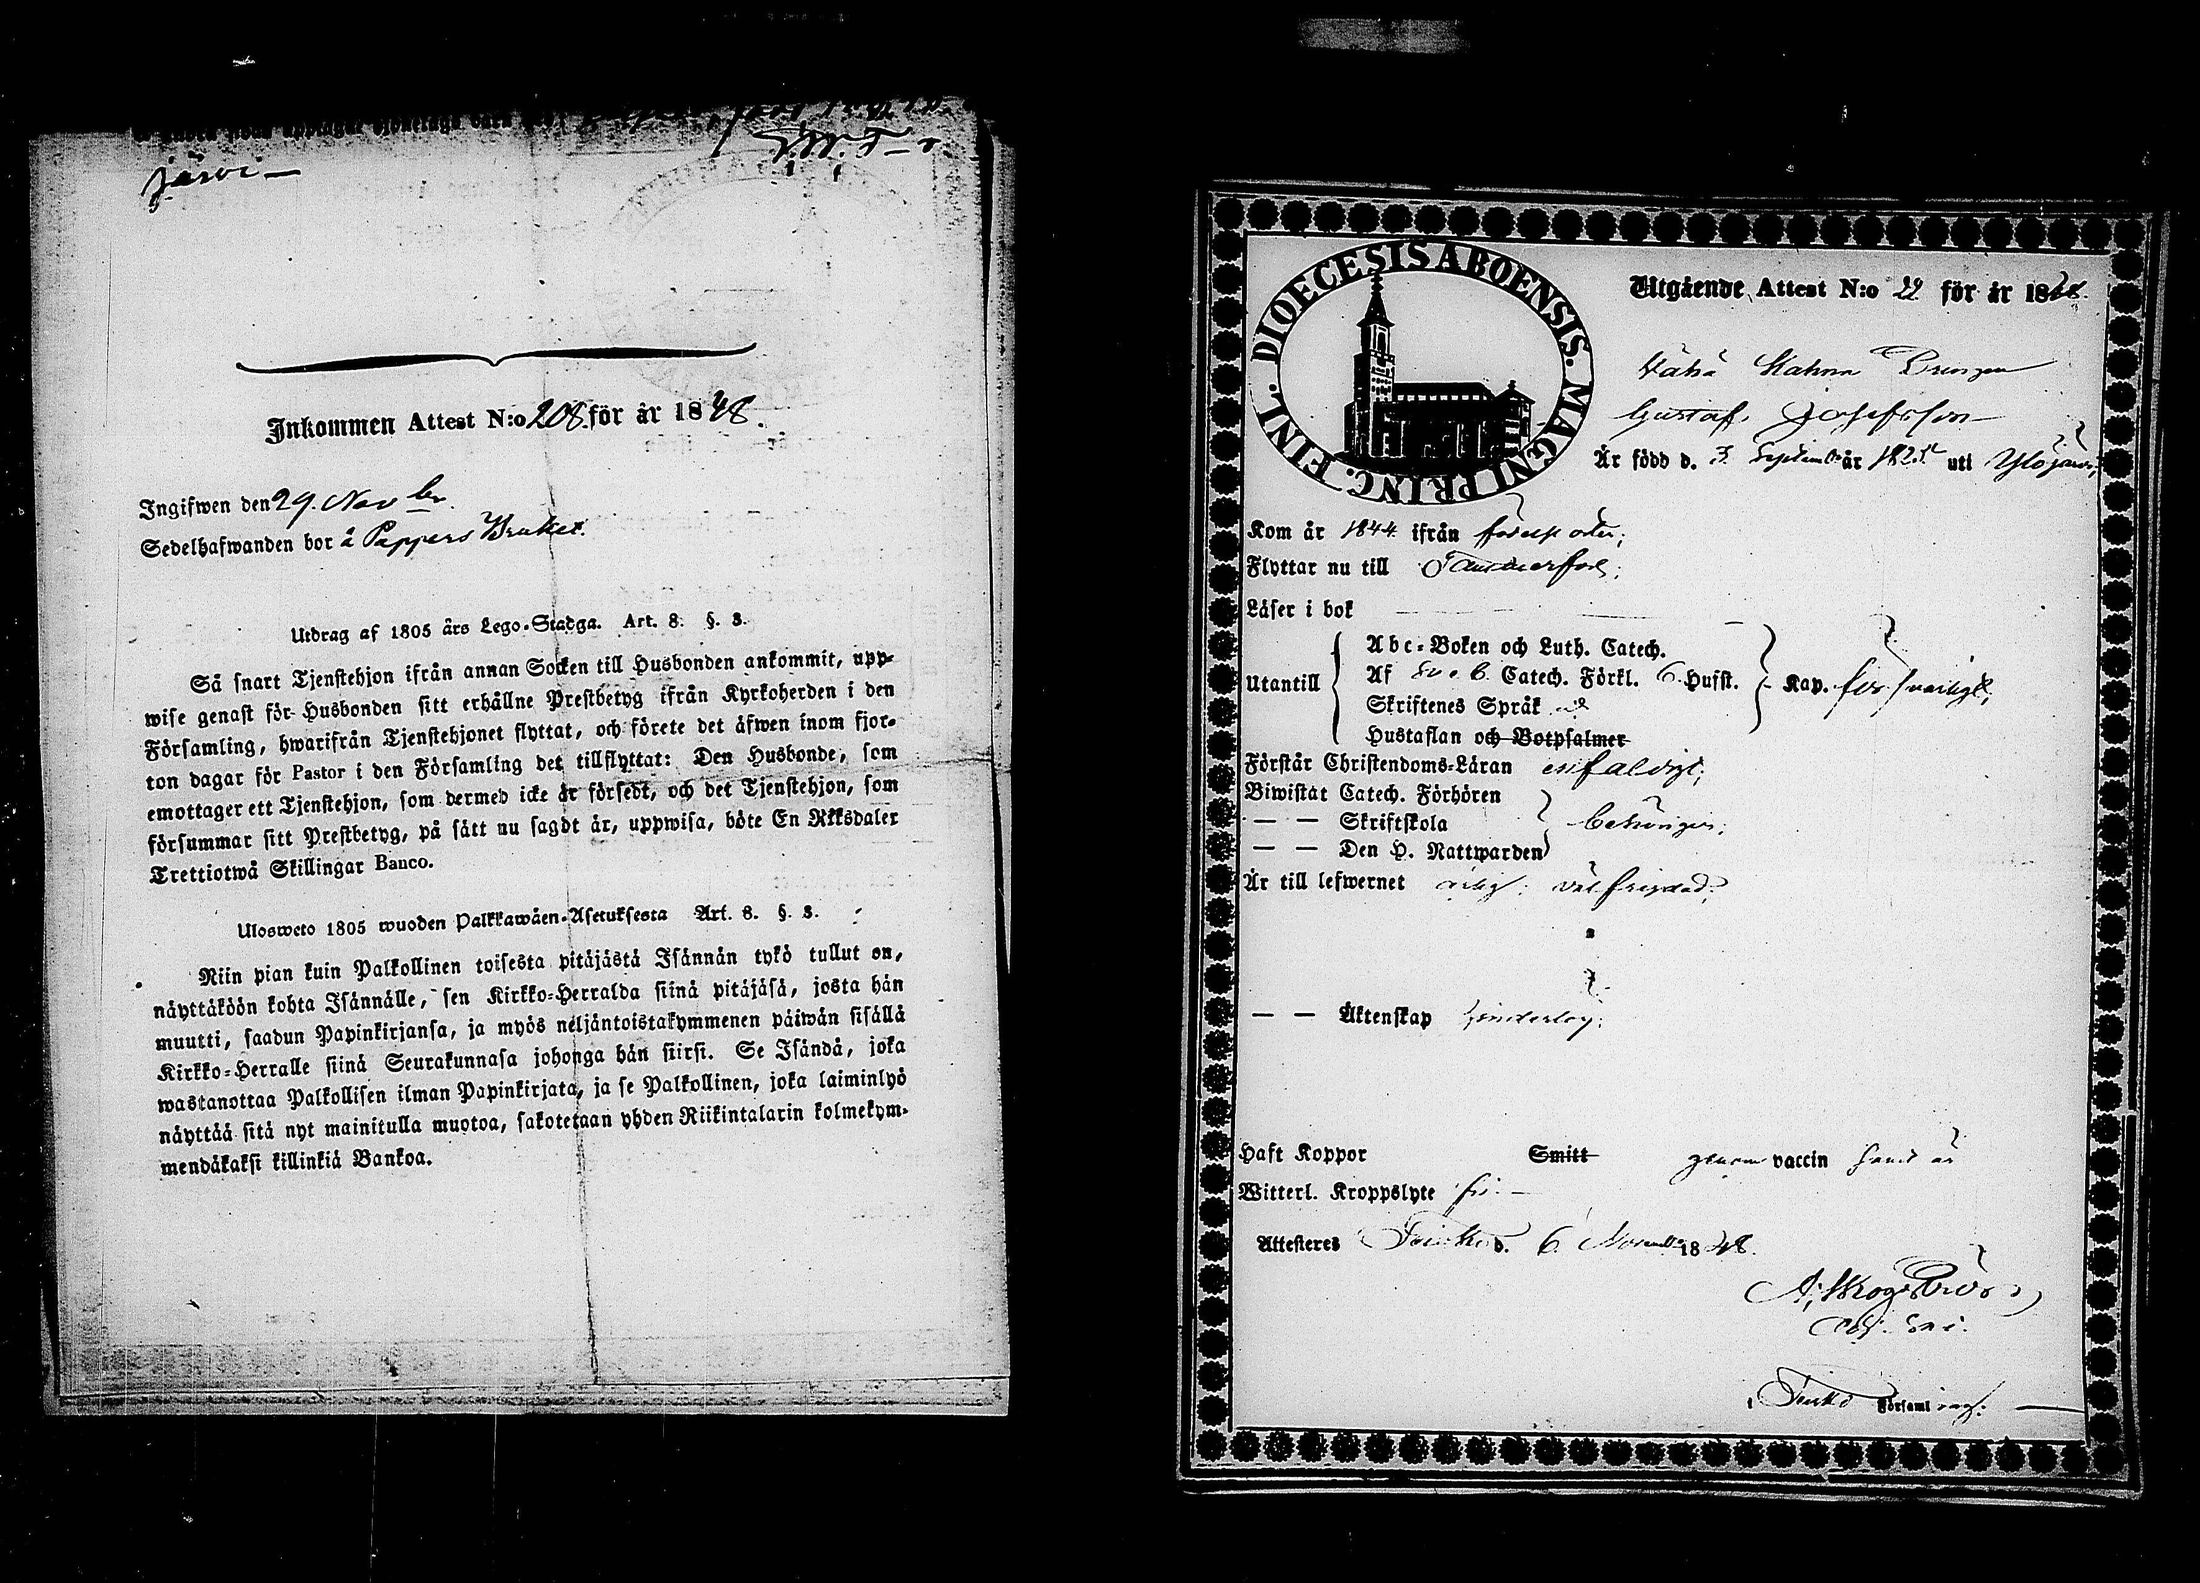 järvi —
Inkommen Attest N:o 208 för år 1848.
Ingifwen den 29. Novbr.
Sedelhafwanden bor å Pappers Bruket.
Utdrag af 1805 års Lego-Stadga. Art. 8. §. 3.
Så snart Tjenstehjon ifrån annan Socken till Husbonden ankommit, upp-
wise genast för Husbonden sitt erhållne Prestbetyg ifrån Kyrkoherden i den
Församling, hwarifrån Tjenstehjonet flyttat, och förete det äfwen inom fjor-
ton dagar för Pastor i den Församling det tillflyttat: Den Husbonde, som
emottager ett Tjenstehjon, som dermed icke är försedt, och det Tjenstehjon, som
försummar sitt Prestbetyg, på sätt nu sagdt är, uppwisa, böte En Rksdaler
Trettiotwå Skillingar Banco.
Ulosweto 1805 wuoden Palkkawäen-Asetuksesta Art. 8. §. 3.
Niin pian kuin Palkollinen toisesta pitäjästä Isännän tykö tullut on,
näyttäköön kohta Isännälle, sen Kirkko-Herralda siinä pitäjäsä, josta hän
muutti, saadun Papinkirjansa, ja myös neljäntoistakymmenen päiwän sisällä
Kirkko-Herralle siinä Seurakunnasa johonga hän siirsi. Se Isändä, joka
wastanottaa Palkollisen ilman Papinkirjata, ja se Palkollinen, joka laiminlyö
näyttää sitä nyt mainitulla muotoa, sakotetaan yhden Riikintalarin kolmekym-
mendäkaksi killinkiä Bankoa.
DIOECESIS ABOENSIS. MAGNI PRINC. FINL.
Utgående Attest N:o 22 för år 1848.
Vähä Kahna Drengen
Gustaf Josefsson
Är född d. 3 September år 1825 uti Ylöjärvi,
Kom år 1844 ifrån födelse orten;
Flyttar nu till Tammerfors;
Läser i bok
Utantill
Abc-Boken och Luth. Catech.
Af Sveb. Catech. Förkl. 6 Hufst. Kap. försvarligt;
Skriftenes Språk
Hustaflan och Botpsalmer
Förstår Christendoms-Läran enfaldigt;
Biwistat Catech. Förhören
— — Skriftskola behörigen;
— — Den H. Nattwarden
Är till lefwernet ärlig; väl frejdad;
— — Äktenskap hinderlös;
Haft Koppor Smitt genom vaccin
Witterl. Kroppslyte fri. —
Attesteras d. 6 November 1848.
Församling. —